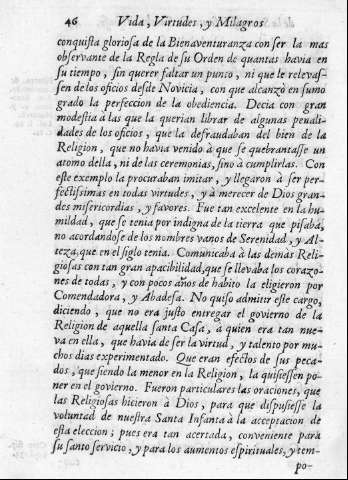 46 Vida, Virtudes, y Milagros
conquista gloriosa de la Bienaventuranza con ser la mas
observante de la Regla de su Orden de quantas havia en
su tiempo, sin querer faltar un punto, ni que le relevas-
sen de los oficios desde Novicia, con que alcanzò en sumo
grado la perfeccion de la obediencia. Decia con gran
modestia à las que la querian librar de algunas penali-
dades de los oficios, que la defraudaban del bien de la
Religion, que no havia venido à que se quebrantasse un
atomo della, ni de las ceremonias, sino à cumplirlas. Con
este exemplo la procuraban imitar, y llegaron à ser per-
fectissimas en todas virtudes, y à merecer de Dios gran-
des misericordias, y favores. Fue tan excelente en la hu-
mildad, que se tenia por indigna de la tierra que pisaba,
no acordandose de los nombres vanos de Serenidad, y Al-
teza, que en el siglo tenia. Comunicaba à las demàs Reli-
giosas con tan gran apacibilidad, que se llevaba los corazo-
nes de todas, y con pocos años de habito la eligieron por
Comendadora, y Abadesa. No quiso admitir este cargo,
diciendo, que no era justo entregar el govierno de la
Religion de aquella santa Casa, a quien era tan nue-
va en ella, que havia de ser la virtud, y talento por mu-
chos dias experimentado. Que eran efectos de sus peca-
dos, que siendo la menor en la Religion, la quisiessen po-
ner en el govierno. Fueron particulares las oraciones, que
las Religiosas hicieron à Dios, para que dispusiesse la
voluntad de nuestra Santa Infanta à la acceptacion de
esta eleccion; pues era tan acertada, conveniente para
su santo servicio, y para los aumentos espirituales, y tem-
po-